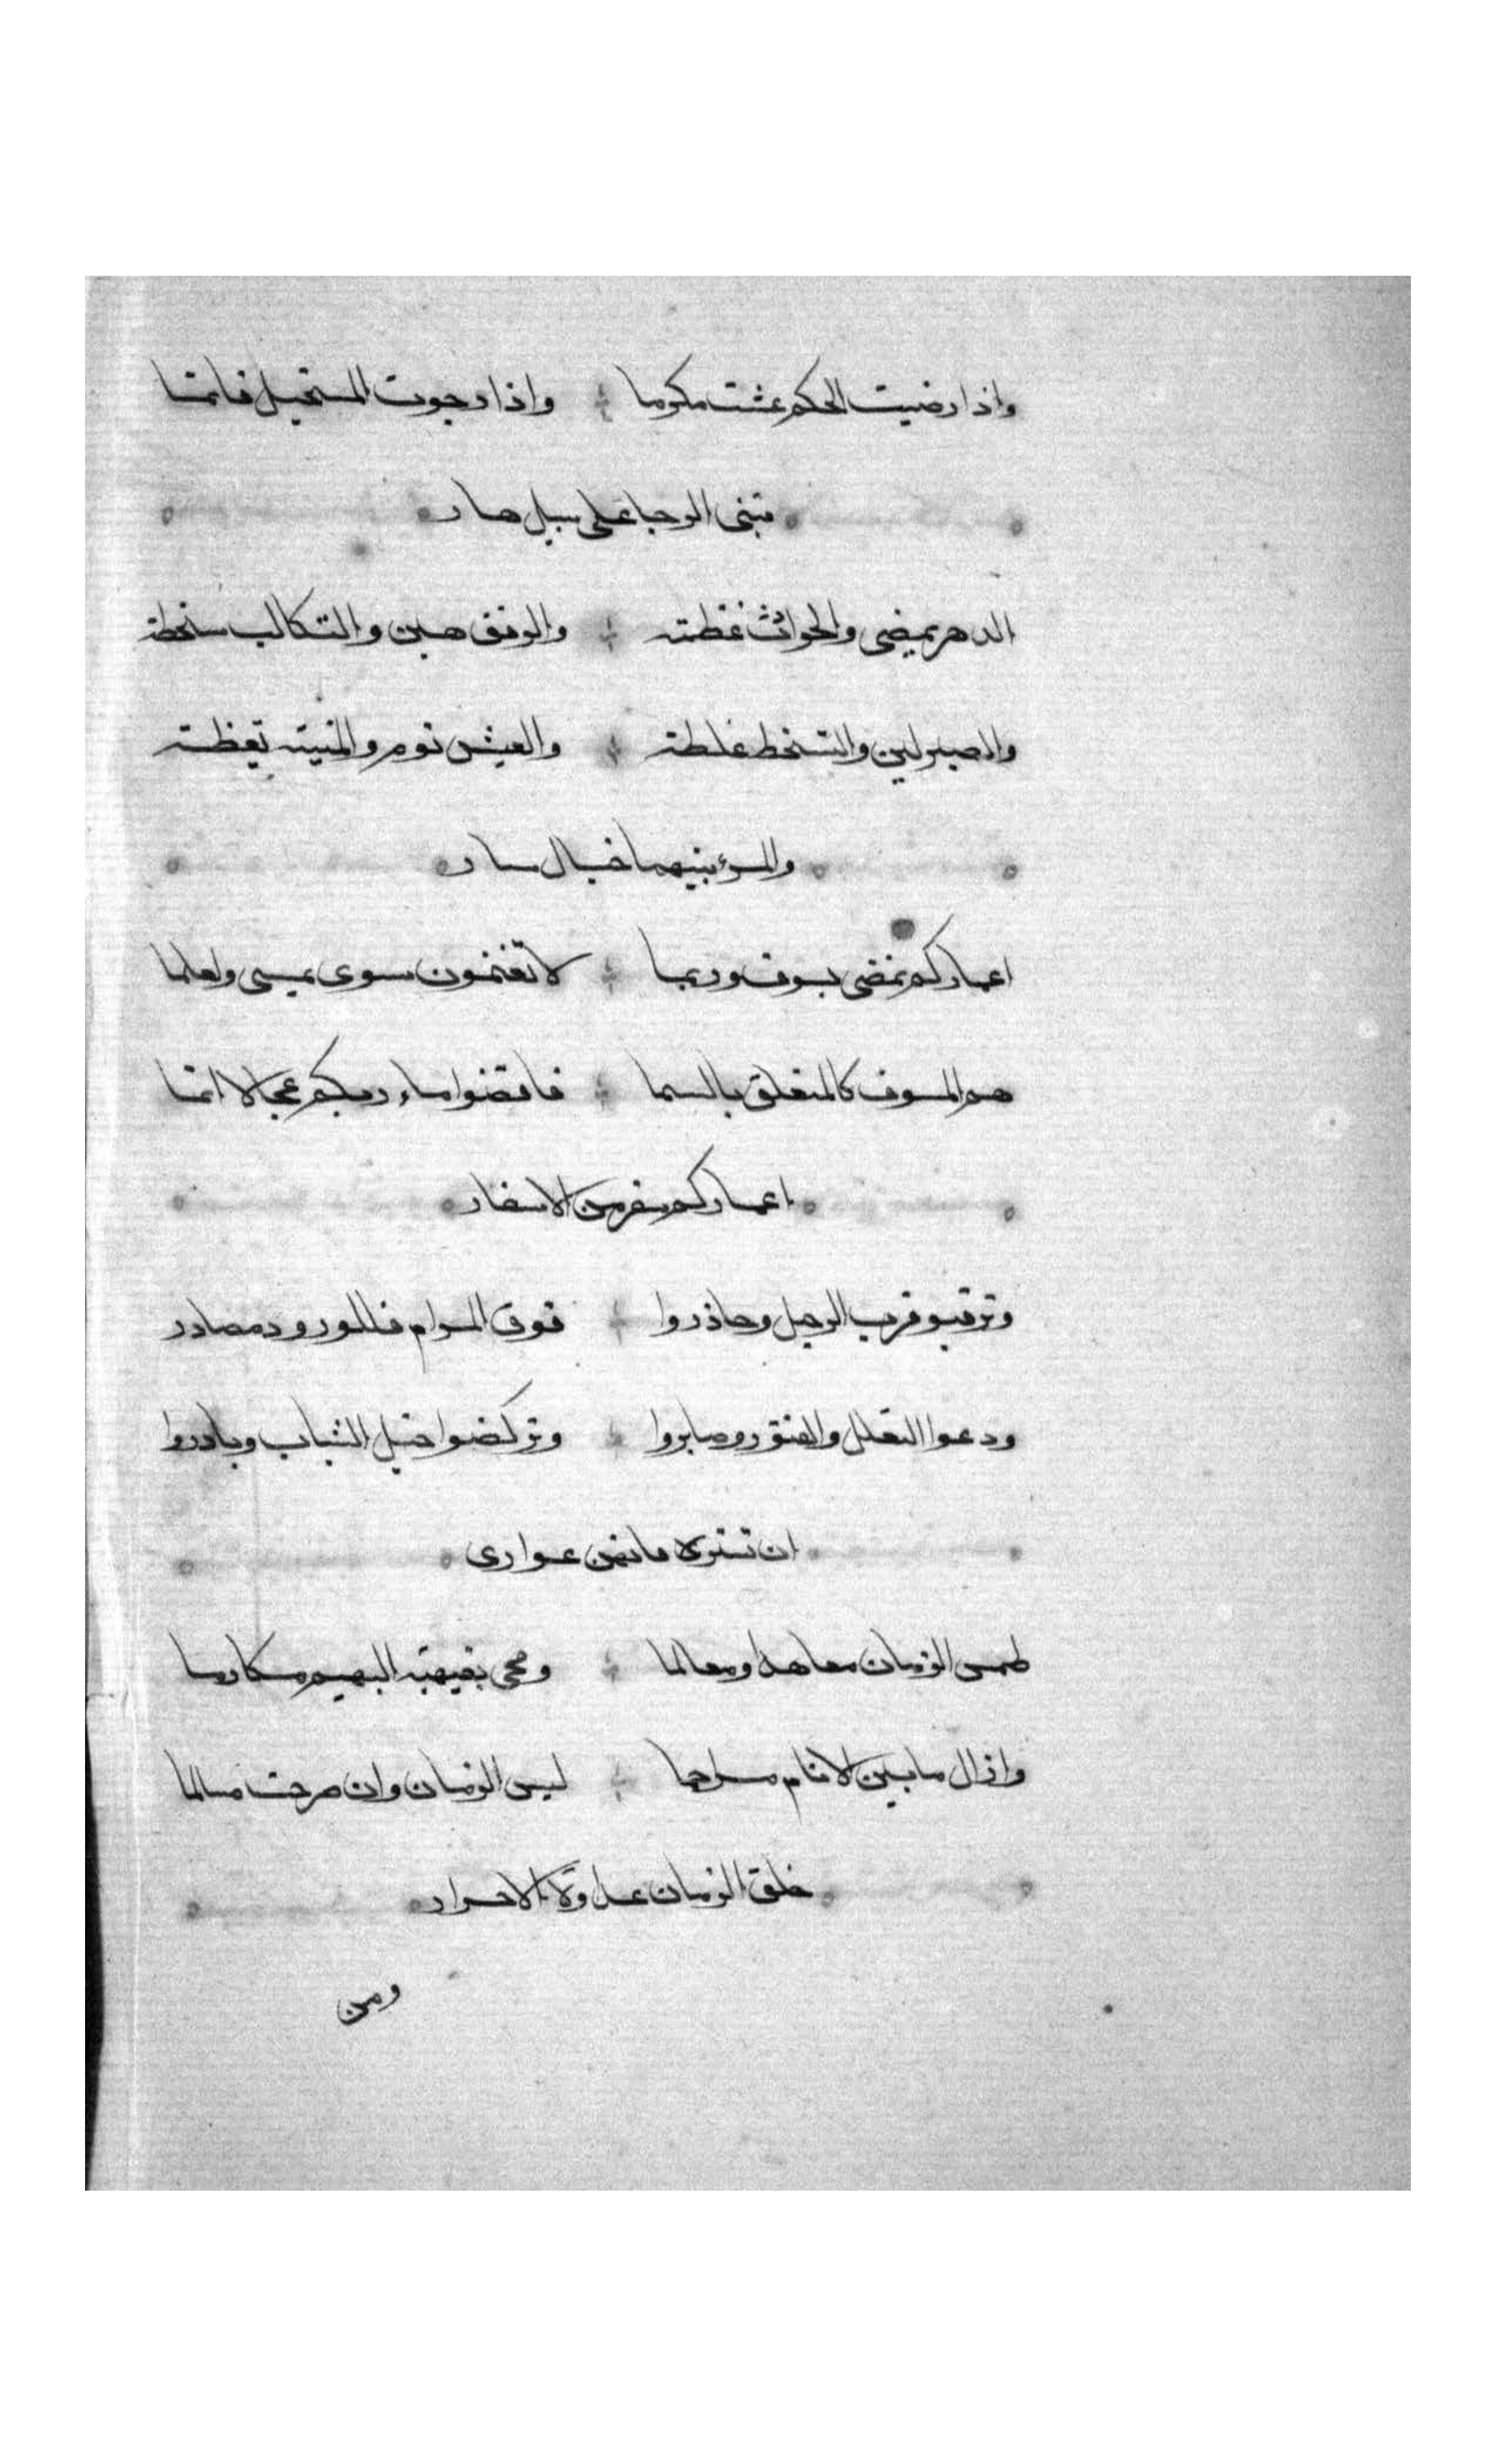 واذا رضيت الحكم عشت مكرما واذا رجوت المستحيل فانما
تبنى الرجا على سيل هار
الدهر يمضى والحوادث غطته والرفق هين والتكالب سخطة
والصبر لين والتسخط غلطة والعيش نوم والمنية يقظة
والمرء بينهما خيال سار
اعماركم تمضى بسوف وربما لا تغنمون سوى بميسى ولعلما
هم المسوف كالمتعلق بالسما فاقضوا ماء ربكم عجالا انما
اعماركم سفر من الاسفار
وترقبو قرب الرحيل وحاذروا فوق المرام فللورود مصادر
ودعوا التعلل والفتور وصابروا وتركضوا خيل الشباب وبادروا
ان تسترد فانهن عوارى
طمس الزمان معاهدا ومعالما ومحى بقيهته البهيم مكارما
وازال ما بين الانام مراحما ليس الزمان وان حرصت مسالما
خلق الزمان عداوة الاحرار
ومن